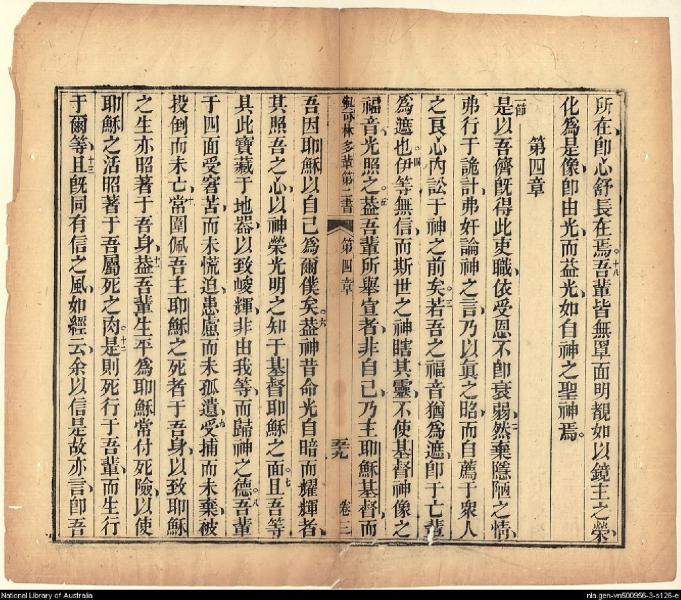 所在即心舒長在焉十八吾輩皆無罩面明覩如以鏡主之榮
化為是像即由光而益光如自神之聖神焉
第四章
一節是以吾儕既得此吏職依受恩不即衰弱二然棄隱陋之情
弗行于詭計弗奸論神之言乃以真之昭而自薦于衆人
之良心內訟于神之前矣三若吾之福音猶為遮即于亡輩
為遮也四伊等無信而斯世之神瞎其靈不使基督神像之
福音光照之五葢吾輩所舉宣者非自己乃主耶穌基督而
與可林多輩第二書 第四章 五九 卷三
吾因耶穌以自己為爾僕矣六葢神昔命光自暗而耀輝者
其照吾之心以神榮光明之知于基督耶穌之面七且吾等
具此寶藏于地器以致峻輝非由我等而歸神之德八吾輩
于四面受窘苦而未慌迫患慮而未孤遺九受捕而未棄被
投倒而未亡十常圍佩吾主耶穌之死者于吾身以致耶穌
之生亦昭著于吾身十一葢吾輩生平為耶穌常付死險以使
耶穌之活昭著于吾屬死之肉十二是則死行于吾輩而生行
于爾等十三且既同有信之風如經云余以信是故亦言即吾
National Library of Australia
nla.gen-vn500956-3-s126-e